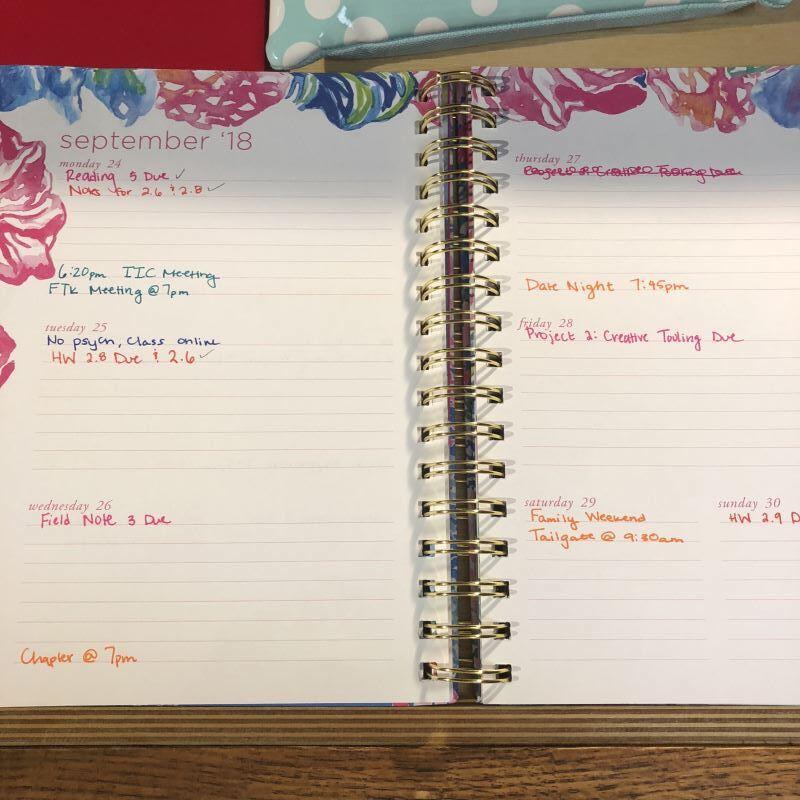 september '18
monday 24
Reading 5 Due ✓
Notes for 2.6 & 2.8 ✓
6:20pm IIC Meeting
FTK Meeting @ 7pm
tuesday 25
No psych, Class online
HW 2.8 Due & 2.6 ✓
wednesday 26
Field Note 3 Due
Chapter @ 7pm
thursday 27
Creative Tooling Due
Date Night 7:45pm
friday 28
Project 2: Creative Tooling Due
saturday 29
Family Weekend
Tailgate @ 9:30am
sunday 30
HW 2.9 D